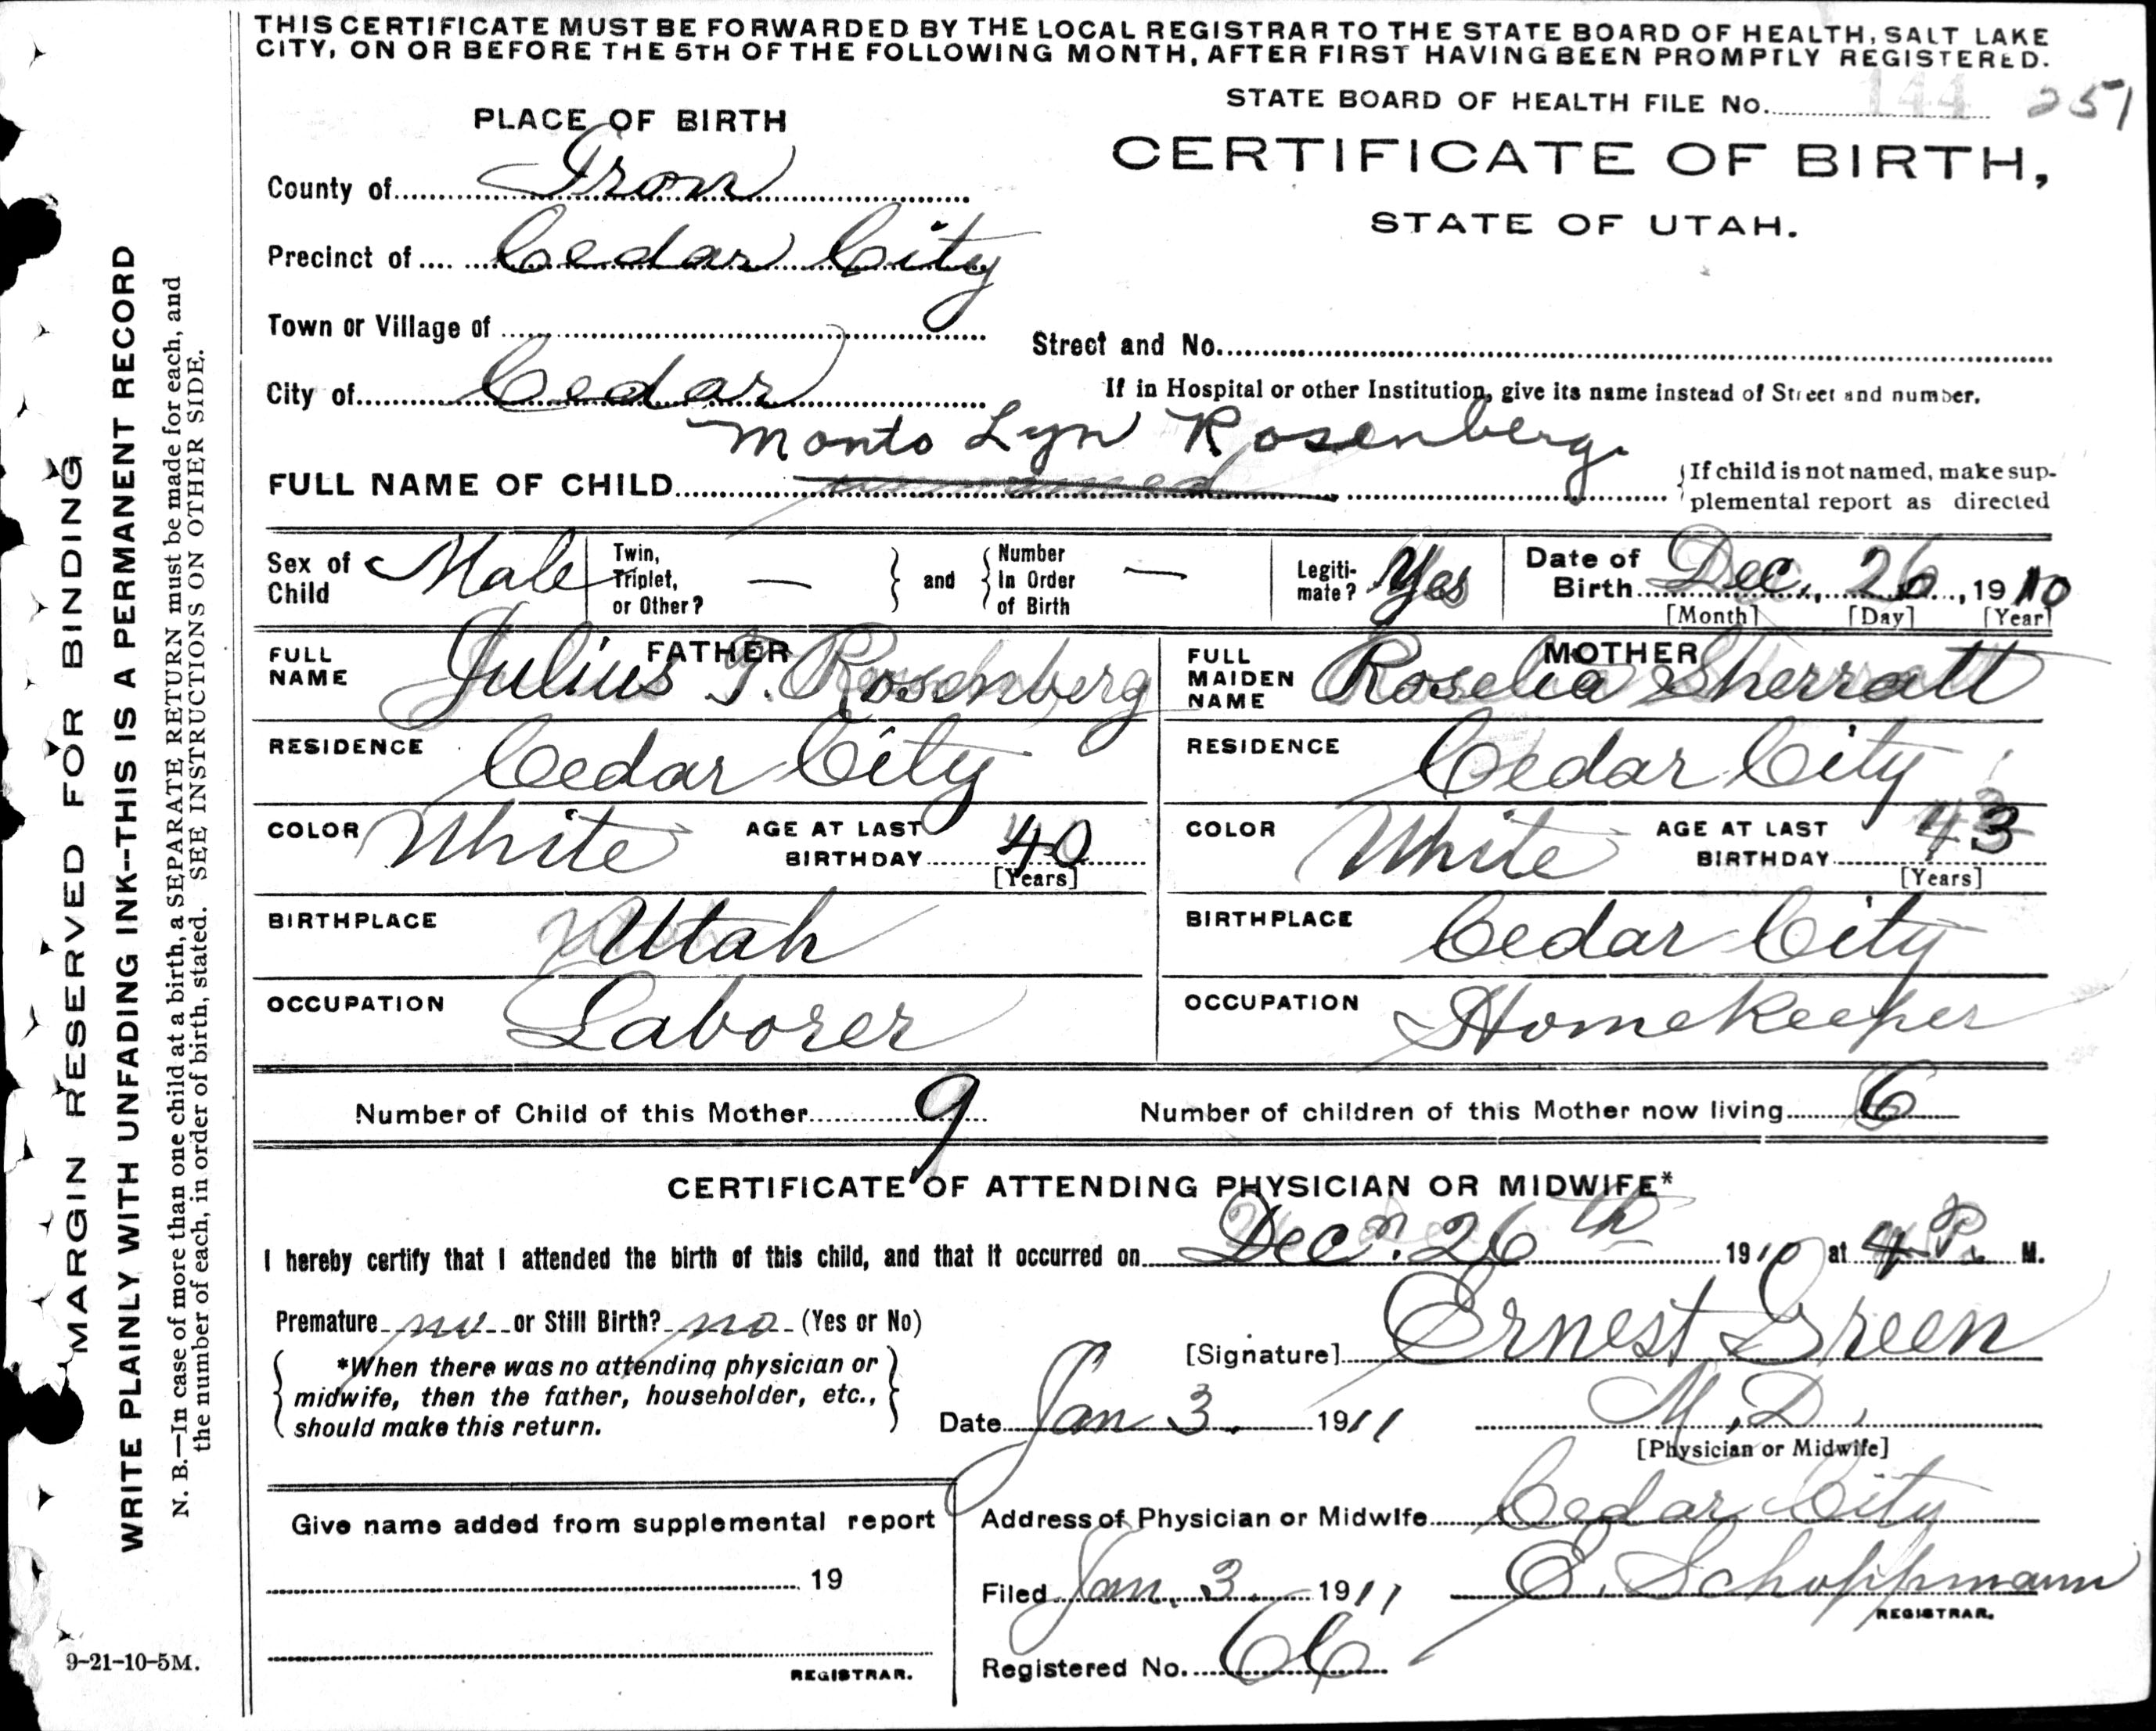 THIS CERTIFICATE MUST BE FORWARDED BY THE LOCAL REGISTRAR TO THE STATE BOARD OF HEALTH, SALT LAKE
CITY, ON OR BEFORE THE 5TH OF THE FOLLOWING MONTH, AFTER FIRST HAVING BEEN PROMPTLY REGISTERED.
STATE BOARD OF HEALTH FILE No. 144 251
PLACE OF BIRTH
CERTIFICATE OF BIRTH,
STATE OF UTAH.
County of Iron
Precinct of Cedar City
Town or Village of
Street and No.
City of Cedar
If in Hospital or other Institution, give its name instead of Street and number.
Monto Lyn Rosenberg.
FULL NAME OF CHILD unnamed
{If child is not named, make sup-
plemental report as directed
Sex of Child Male
Twin, Triplet, or Other? — } and { Number In Order of Birth —
Legiti-mate? Yes
Date of Birth Dec. 26, 1910
[Month] [Day] [Year]
FATHER
FULL NAME Julius T. Rosenberg
MOTHER
FULL MAIDEN NAME Roselia Sherratt
RESIDENCE Cedar City
RESIDENCE Cedar City
COLOR White AGE AT LAST BIRTHDAY 40 [Years]
COLOR White AGE AT LAST BIRTHDAY 43 [Years]
BIRTHPLACE Utah
BIRTHPLACE Cedar City
OCCUPATION Laborer
OCCUPATION Homekeeper
Number of Child of this Mother 9
Number of children of this Mother now living 6
CERTIFICATE OF ATTENDING PHYSICIAN OR MIDWIFE*
I hereby certify that I attended the birth of this child, and that it occurred on Dec. 26th 1910 at 4 P. M.
Premature no or Still Birth? no (Yes or No)
[Signature] Ernest Green
{ *When there was no attending physician or
midwife, then the father, householder, etc.,
should make this return. }
Date Jan 3. 1911
M.D.
[Physician or Midwife]
Give name added from supplemental report
19
REGISTRAR.
Address of Physician or Midwife Cedar City
Filed Jan. 3. 1911
E. Schoppmann
REGISTRAR.
Registered No. 66
MARGIN RESERVED FOR BINDING
WRITE PLAINLY WITH UNFADING INK--THIS IS A PERMANENT RECORD
N. B.—In case of more than one child at a birth, a SEPARATE RETURN must be made for each, and
the number of each, in order of birth, stated. SEE INSTRUCTIONS ON OTHER SIDE.
9-21-10-5M.